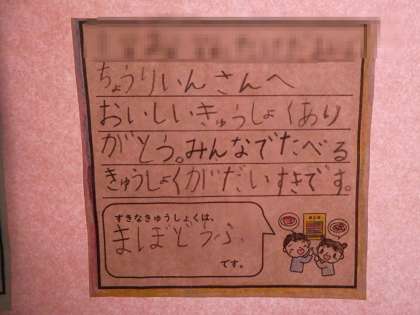 ちょうりいんさんへ
おいしいきゅうしょくあり
がとう。みんなでたべる
きゅうしょくがだいすきです。
すきなきゅうしょくは、
まぼどうふ
です。